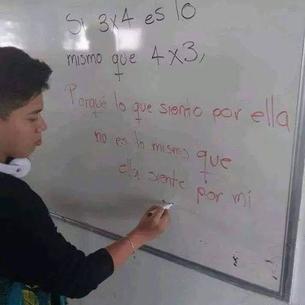 Si 3x4 es lo
mismo que 4x3,
Porqué lo que siento por ella
no es lo mismo que
ella siente por mí